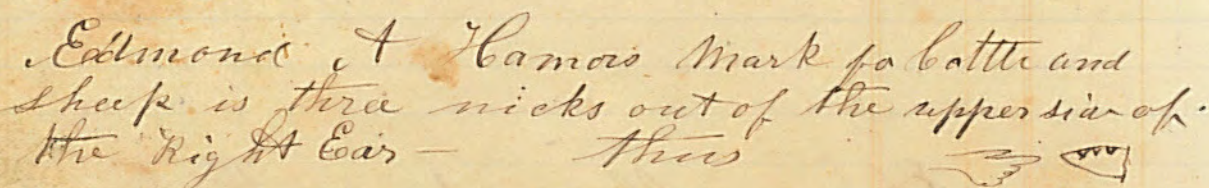 Edmond A Hamois Mark fo Cattle and
sheep is three nicks out of the upper side of
the Right Ear — thus